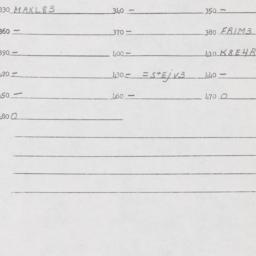 330 MAKLE3 340 - 350 -
360 - 370- 380 FRIM3
390 - 400- 410 K8E4R
420 - 430- =S+Ejv3 440 -
450 - 460 - 470 0
480 0